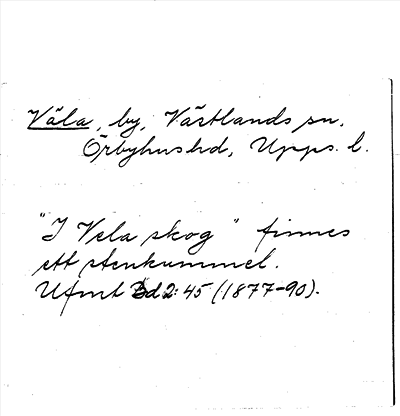 Väla, by, Västlands sn.
Örbyhus hd, Upps. l.
"I Vela skog" finnes
ett stenkummel.
Ufmt Bd 2: 45 (1877-90).